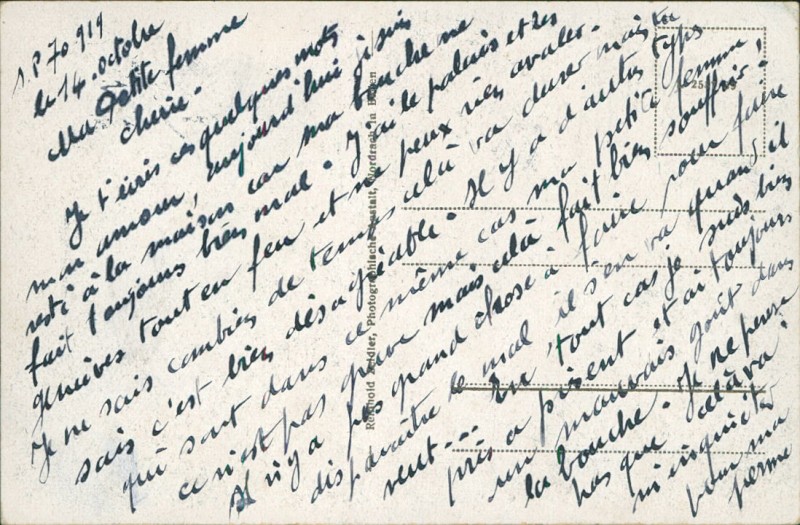 S.P 70.919
le 14. octobre
Ma Petite femme
cherie.
Je t'écris ces quelques mots
mon amour, aujourd'hui j'suis
resté à la maison car ma bouche me
fait toujours bien mal. J'ai le palais et les
gencives tout en feu et ne peux rien avaler.
Je ne sais combien de temps celà va durer mais tu
sais c'est bien désagréable. Il y a d'autres typs
qui sont dans ce même cas ma petite femme
ce n'est pas grave mais celà fait bien souffrir!
Il n'y a pas grand chose à faire pour faire
disparaître le mal il s'en va quand il
veut... En tout cas je suis bien
pris à présent et ai toujours
un mauvais goût dans
la bouche. Je ne pense
pas que celà va
m'inquiéter
pour ma
perme
Reinhold Zeidler, Photographische Anstalt, Nordrach in Baden